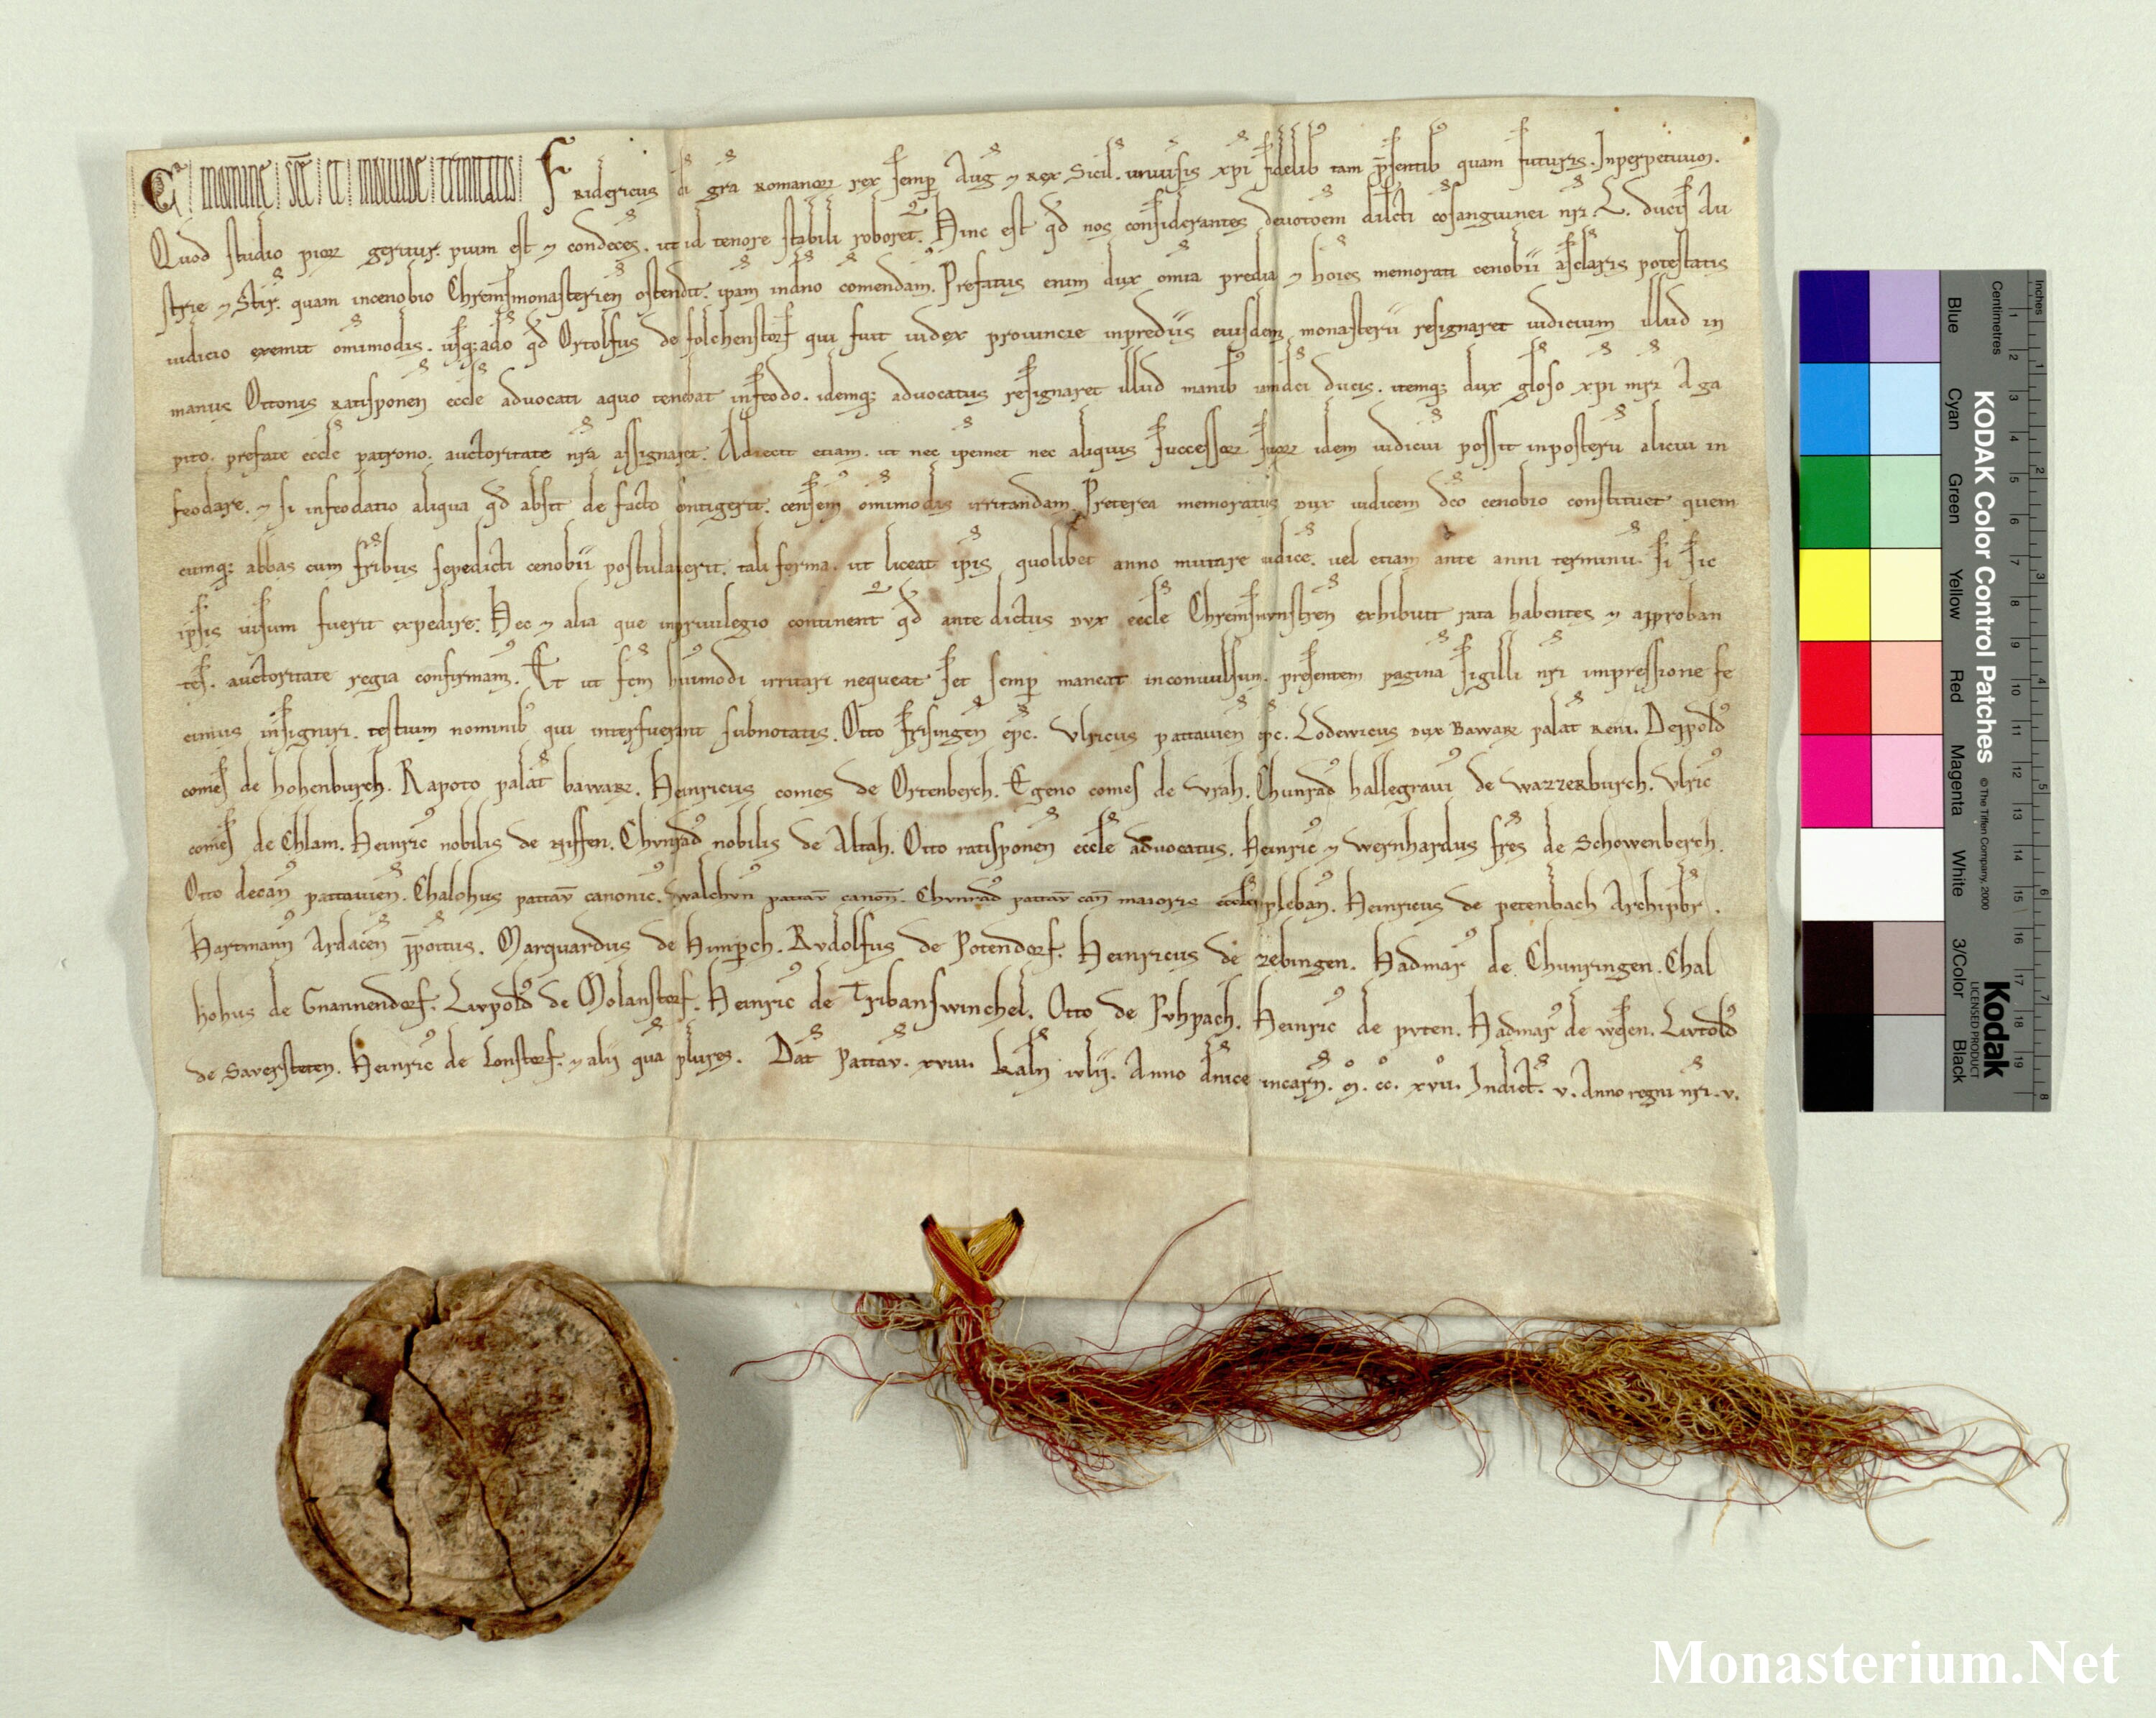 C nomine sce et indiuidue trinitatis Fridericus di gra romanorꝝ rex semp Aug ⁊ rex Sicil. uniuͥsis xpi fidelibꝰ tam p̄sentibꝰ quam futuris. Inperpetuum.
Quod studio piorꝝ geritur. pium est ⁊ condecēs. ut id tenore stabili roboret᷑. Hinc est qd nos considerantes deuotoēm dilc̄ti cōsanguinei nr̄i. L. ducis Au
strie ⁊ Stir. quam incenobio Chremsmonasterien̄ ostendit. ipam indn̄o comendam̄. Prefatus enim dux omīa predia ⁊ hoīes memorati cenobii a secularis potestatis
iudicio exemit omīmodis. usq; adeo qd Ortolfus de folchenstorf qui fuit iudex prouincie inprediis eiusdem monasterii resignaret iudicium illud in
manus Ottonis Ratisponen̄ eccl̄e aduocati aquo tenebat infeodo. idemq; aduocatus resignaret illud manibꝰ ducis. itemq; dux gl̄oso xpi mr̄i Aga
pito. prefate eccl̄e patrono. auctoritate nr̄a assignaret. Adiecit etiam. ut nec ipemet nec aliquis successorꝝ suorꝝ idem iudiciū possit inposterū alicui in
feodare. ⁊ si infeodatio aliqua qd absit de facto ꝯntigerit. censem̄ omīmodis irritandam. Preterea memoratus dux iudicem dc̄o cenobio constituet quem
cumq; abbas cum fr̄ibus sepedicti cenobii postulauerit. tali forma. ut liceat ip̄is quolibet anno mutare iudicē. uel etiam ante anni terminū. si sic
ipsis uisum fuerit expedire. Hec ⁊ alia que inpriuilegio continent᷑ qd ante dictus dvx eccl̄e Chremsmvnstren̄ exhibuit rata habentes ⁊ approban
tes. auctoritate regia confirmamꝰ. Et ut fc̄m huiꝰmodi irritari nequeat set semp maneat inconuulsum. presentem paginā sigilli nr̄i impressione fe
cimus insigniri. testium nominibꝰ qui interfuerant subnotatis. Otto frisingen̄ ep̄c. Vlricus pattauien̄ ep̄c. Lodewicus dvx Bawarꝝ palat̄ Reni. Deppoldꝰ
comes de hohenburch. Rapoto palat̄ bawarꝝ. Heinricus comes de Ortenberch. Egeno comes de vrah. Chunradꝰ hallegrauiꝰ de wazzerburch. Vlricꝰ
comes de Chlam. Heinricꝰ nobilis de niffen. Chvnradꝰ nobilis de Altah. Otto ratisponen̄ eccl̄e aduocatus. Heinricꝰ ⁊ wernhardus fr̄es de Schowenberch.
Otto decanꝰ pattauien̄. Chalohus pattav̄ canonicꝰ. walchvnꝰ pattav̄ canon̄. Chvnradꝰ pattav̄ can̄ maioris eccl̄e plebanꝰ. Heinricus de petenbach Archipb̄r.
Hartmannꝰ Ardacen̄ p̄poitus. Marquardus de Himperch. Rvdolfus de Potendorf. Heinricus de zebingen. Hadmarꝰ de Chunringen. Chal
hohus de Gnannendorf. Livpoldꝰ de Molanstorf. Heinricꝰ de Tribanswinchel. Otto de Pvhpach. Heinricꝰ de pvten. Hadmarꝰ de wesen. Livtoldꝰ
de Saversteten. Heinricꝰ de Lonstorf. ⁊ alij quā plures. Dat̄ Pattav̄. xviii. kal̄n iulij. Anno dn̄ice incarn̄. m̊. cc̊. xvii̊. Indict̄. v. Anno regni nr̄i. v.
Inches
Centimetres
1 2 3 4 5 6 7 8 9 10 11 12 13 14 15 16 17 18 19
1 2 3 4 5 6 7 8
Blue Cyan Green Yellow Red Magenta White 3/Color Black
KODAK Color Control Patches
© The Tiffen Company, 2000
Kodak
LICENSED PRODUCT
Monasterium.Net